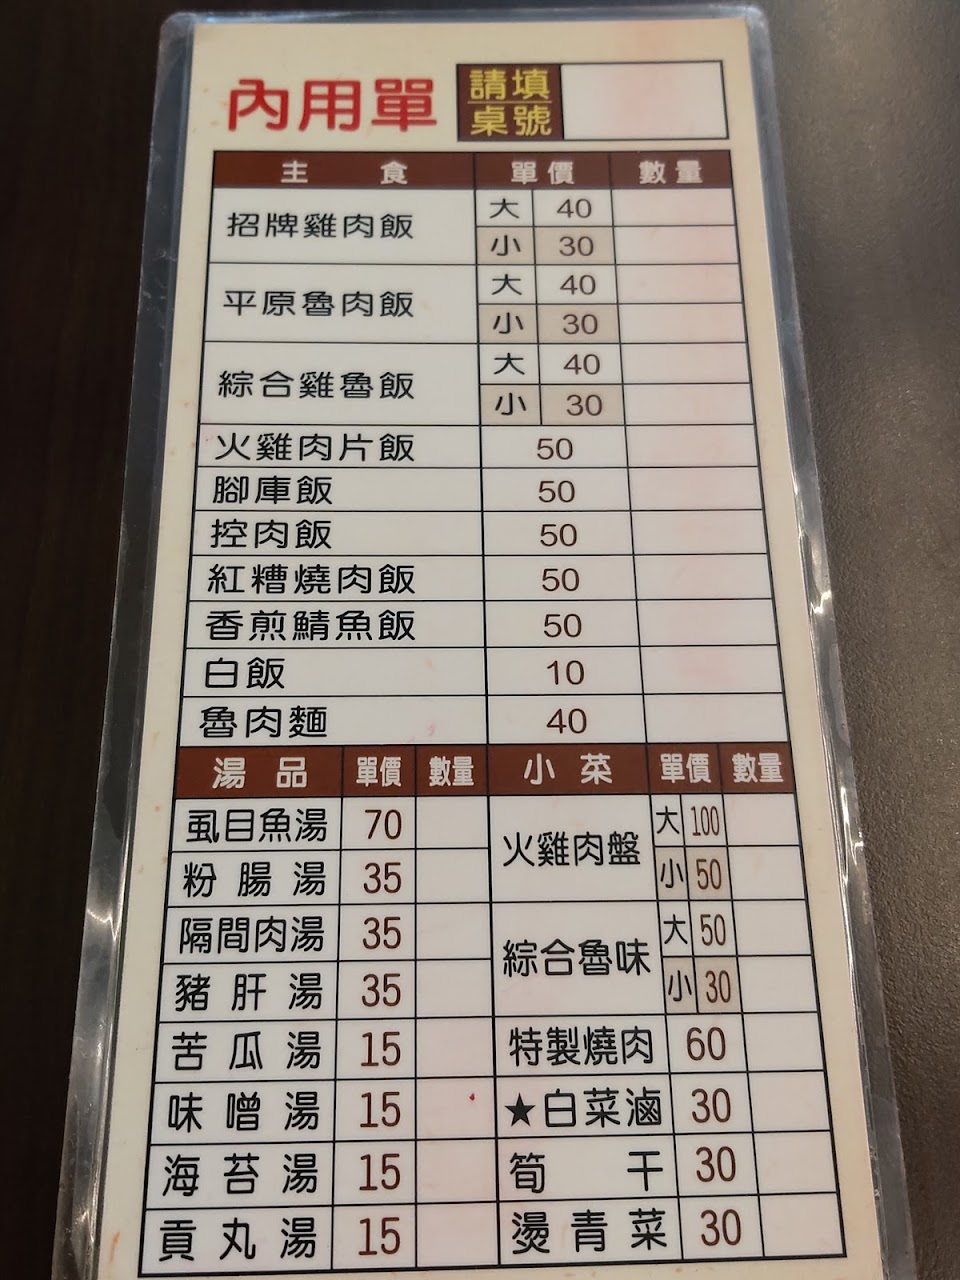 內用單 請填桌號
主食 單價 數量
招牌雞肉飯 大 40
小 30
平原魯肉飯 大 40
小 30
綜合雞魯飯 大 40
小 30
火雞肉片飯 50
腳庫飯 50
控肉飯 50
紅糟燒肉飯 50
香煎鯖魚飯 50
白飯 10
魯肉麵 40
湯品 單價 數量
虱目魚湯 70
粉腸湯 35
隔間肉湯 35
豬肝湯 35
苦瓜湯 15
味噌湯 15
海苔湯 15
貢丸湯 15
小菜 單價 數量
火雞肉盤 大 100
小 50
綜合魯味 大 50
小 30
特製燒肉 60
★白菜滷 30
筍干 30
燙青菜 30